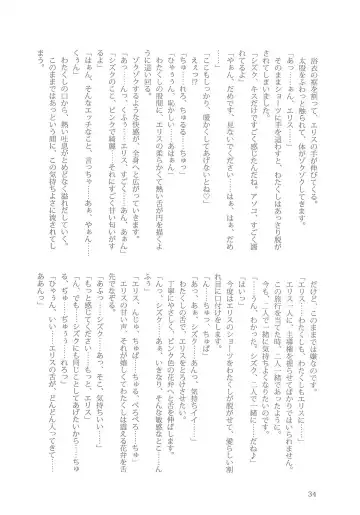 浴衣の裾を割って、エリスの手が伸びてくる。
太腿をふわっと触られて、体がゾクゾクしてきます。
「あっ……あぁん、エリス……」
そのままショーツに手を這わすと、わたくしはあっさり脱が
されてしまいました。
「シズク キスだけですごく感じたんだね。アソコ、すごく濡
れてるよ」
「やぁん、だめです、見ないでください……はぁ、はぁ、だめ
ぇ……」
「ここもしっかり、暖かくしてあげないとね♡」
「えぇっ!?」
「ちゅ……れろ、ちゅるる……ちゅっ」
「ひゃぅぅん、恥かしい……あはぁん」
わたくしの股間に、エリスの柔らかくて熱い舌が円を描くよ
うに這い回る。
ゾクゾクするような快感が、全身へと広がっていきます。
「あっ……んっ、くふぅ……エリス、すごく……あん」
「シズクのここ、ピンクで綺麗……それにすごく甘い匂いがす
るよ」
「はぁん、そんなエッチなこと、言っちゃ……あぁ、やぁん……
くぅん」
わたくしの口から、熱い吐息がとめどなく溢れだしていく。
このままではあっという間に、この気持ちよさに流されてし
まう。
だけど、このままでは嫌なのです。
「エリス……わたくしも、わたくしもエリスに……」
エリス一人に、主導権を握らせてばかりではいられません。
この旅行を当てた時、二人一緒であったように。
今も、二人で一緒に気持ちよくなりたいのです。
「……うん、わかった。シズク、二人で一緒に……だね♪」
「はいっ」
今度はエリスのショーツをわたくしが脱がせて、愛らしい割
れ目に口付けをします。
「ん……ちゅっ、ちゅぱ」
「あっ、あぁ、シズク……あんっ、気持ちイイ……」
わたくしの舌で、エリスをとろけさせたい。
丁寧にやさしく、ピンク色の花弁へと舌を伸ばします。
「んっ、シズク、あぁ、いきなり、そんな敏感なとこ……ん、
ふぅ」
「エリス、んじゅ、ちゅぱ……ちゅる、ぺろぺろ……ちゅ」
エリスの甘い声。それが嬉しくてわたくしは震える花弁を舌
先でなぞる。
「あふっ……シズク……あっ、そこ、気持ちいい……」
「もっと感じてください……もっと、エリス」
「ん、でも……シズクにもしてあげたいから……ちゅ
る、ぢゅ……ぢゅぅぅ……れろっ」
「ひゃぅん、いい……エリスの舌が、どんどん入ってきて……
ああんっ」
34